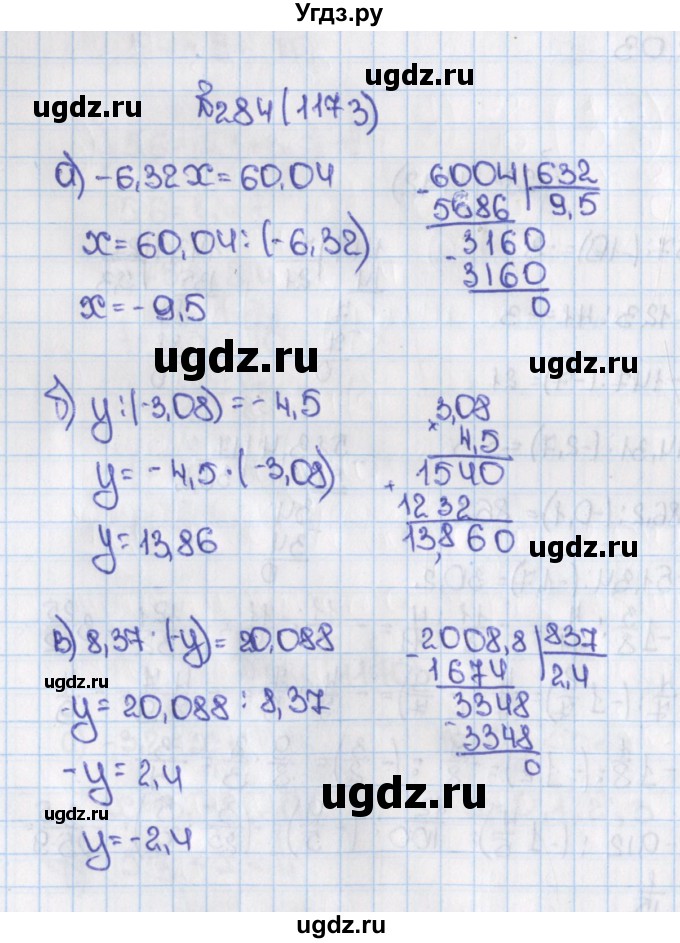 Угдз.ру
ugdz.ru
ugdz.ru
№284(1173)
а) -6,32x=60,04
x=60,04:(-6,32)
x=-9,5
-6004|632
5686 9,5
-3160
3160
0
ugdz.ru
ugdz.ru
б) y:(-3,08)=-4,5
y=-4,5·(-3,08)
y=13,86
3,08
× 4,5
1540
+
1232
13,860
ugdz.ru
в) 8,37·(-y)=20,088
-y=20,088:8,37
-y=2,4
y=-2,4
-2008,8|837
1674 2,4
-3348
3348
0
ugdz.ru
ugdz.ru
ugdz.ru
ugdz.ru
ugdz.ru